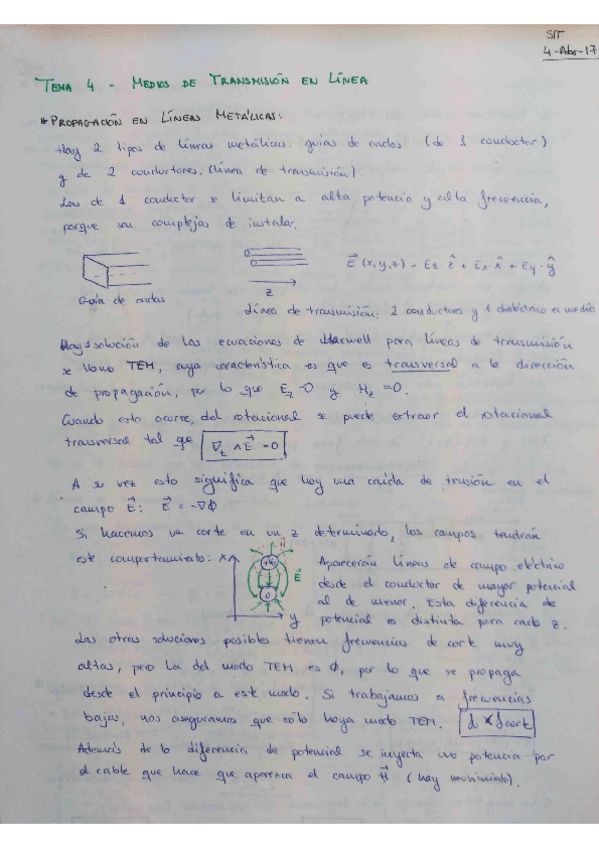 SIT
4-Abr-17
TEMA 4 - MEDIOS DE TRANSMISIÓN EN LÍNEA
* PROPAGACIÓN EN LÍNEAS METÁLICAS:
Hay 2 tipos de líneas metálicas: guías de ondas (de 1 conductor)
y de 2 conductores. (línea de transmisión).
Las de 1 conductor se limitan a alta potencia y alta frecuencia,
porque son complejas de instalar.
E⃗ (x,y,z) = Ez ẑ + Ex x̂ + Ey · ŷ
z
Guía de ondas
Línea de transmisión: 2 conductores y 1 dieléctrico en medio
Hay 1 solución de las ecuaciones de Maxwell para líneas de transmisión
se llama TEM, cuya característica es que es transversal a la dirección
de propagación, por lo que Ez=0 y Hz=0.
Cuando esto ocurre, del rotacional se puede extraer el rotacional
transversal tal que ∇t ∧ E⃗ = 0
A su vez esto significa que hay una caída de tensión en el
campo E⃗: E⃗ = -∇Φ
Si hacemos un corte en un z determinado, los campos tendrán
este comportamiento: x
H⃗
E⃗
0
y
Aparecerán líneas de campo eléctrico
desde el conductor de mayor potencial
al de menor. Esta diferencia de
potencial es distinta para cada z.
Las otras soluciones posibles tienen frecuencias de corte muy
altas, pero la del modo TEM es ϕ, por lo que se propaga
desde el principio a este modo. Si trabajamos a frecuencias
bajas, nos aseguramos que sólo haya modo TEM.
Además de la diferencia de potencial se inyecta una potencia por
el cable que hace que aparezca el campo H⃗ (hay movimiento).